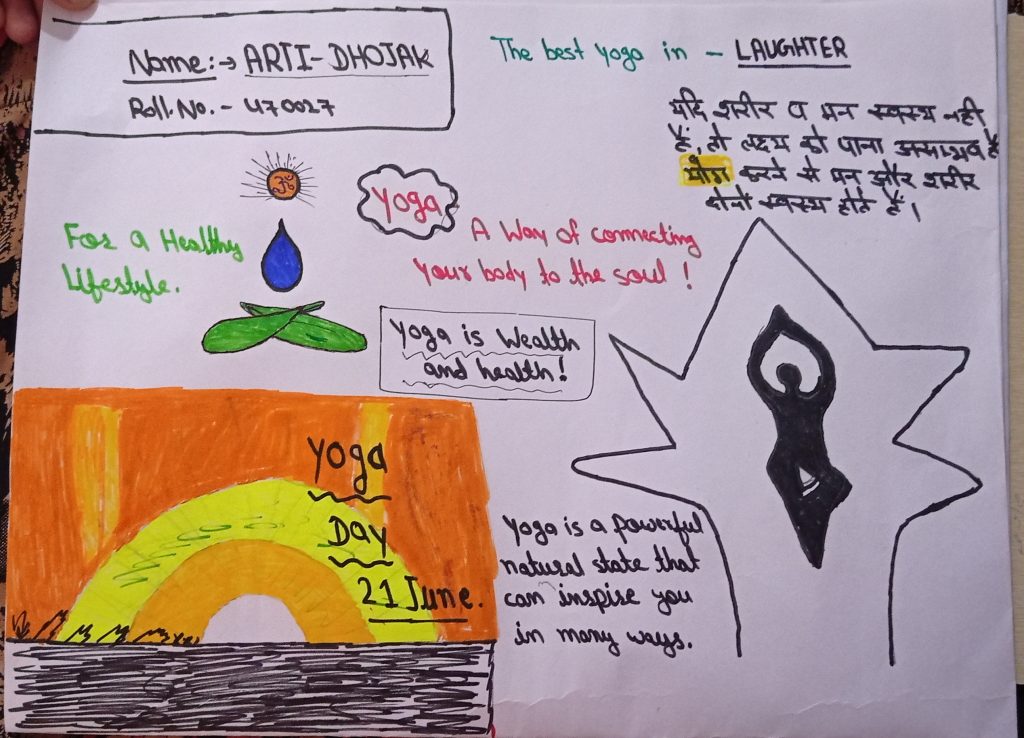 Name:→ ARTI-DHOJAK
Roll.No.- 470027
The best yoga in - LAUGHTER
यदि शरीर व मन स्वस्थ नही
हैं, तो लक्ष्य को पाना असम्भव है
योग करने से मन और शरीर
दोनो स्वस्थ होते हैं।
ॐ
For a Healthy
Lifestyle.
Yoga
A Way of connecting
Your body to the soul!
Yoga is Wealth
and health!
Yoga
Day
21 June.
Yoga is a powerful
natural state that
can inspire you
in many ways.